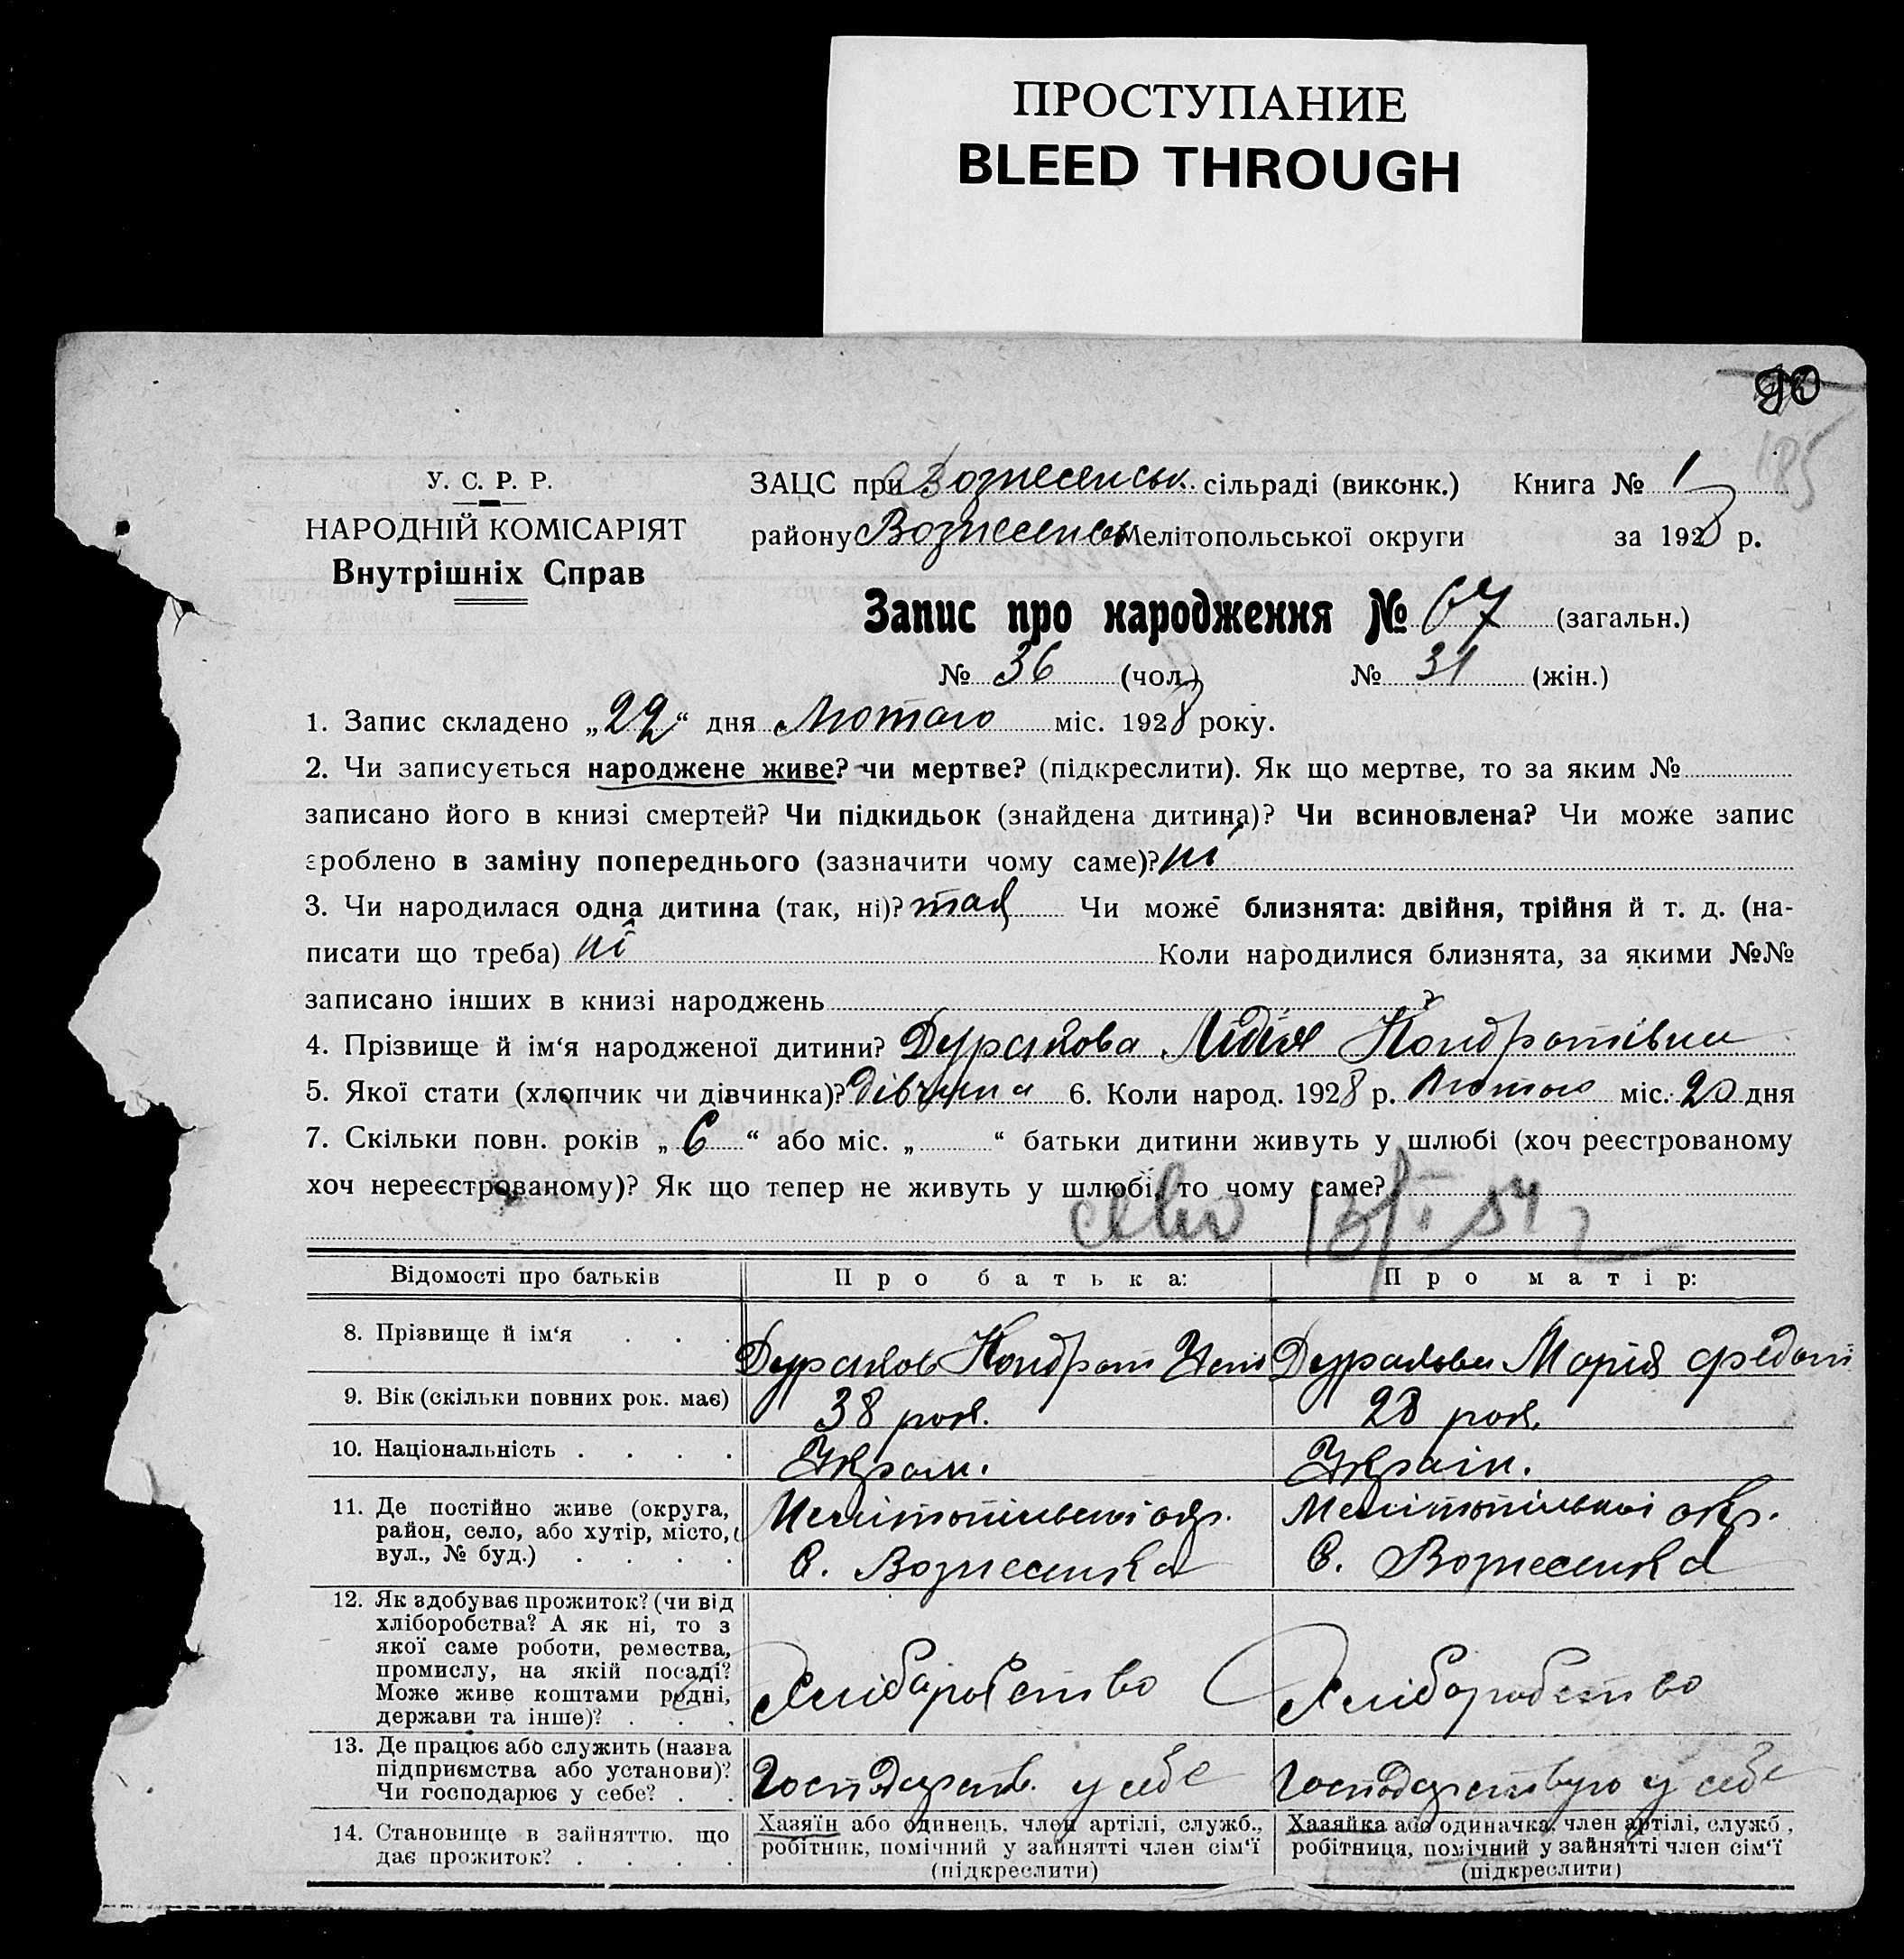 ПРОСТУПАНИЕ
BLEED THROUGH
90
185
У. С. Р. Р.
НАРОДНІЙ КОМІСАРІЯТ
Внутрішніх Справ
ЗАЦС при Вознесенськ. сільраді (виконк.) Книга № 1
району Вознесенськ Мелітопольської округи за 1928 р.
Запис про народження № 67 (загальн.)
№ 36 (чол.) № 31 (жін.)
1. Запис складено „22“ дня Лютого міс. 1928 року.
2. Чи записується народжене живе? чи мертве? (підкреслити). Як що мертве, то за яким №
записано його в книзі смертей? Чи підкидьок (знайдена дитина)? Чи всиновлена? Чи може запис
зроблено в заміну попереднього (зазначити чому саме)? ні
3. Чи народилася одна дитина (так, ні)? так Чи може близнята: двійня, трійня й т. д. (на-
писати що треба) ні Коли народилися близнята, за якими №№
записано інших в книзі народжень ?
4. Прізвище й ім‘я народженої дитини? Дуракова Лідія Кондратівна
5. Якої стати (хлопчик чи дівчинка)? Дівчина 6. Коли народ. 1928 р. Лютого міс. 20 дня
7. Скільки повн. років „ 6 “ або міс. „ “ батьки дитини живуть у шлюбі (хоч реєстрованому
хоч нереєстрованому)? Як що тепер не живуть у шлюбі, то чому саме?
Відомості про батьків Про батька: Про матір:
8. Прізвище й ім‘я . . . Дураков Кондрат Дуракова Марія Федот
9. Вік (скільки повних рок. має) 38 рок. 28 рок.
10. Національність . . . . Україн. Україн.
11. Де постійно живе (округа, район, село, або хутір, місто, вул., № буд.) . . . .
Мелітопільської окр. Мелітопільської окр.
с. Вознесенка с. Вознесенка
12. Як здобуває прожиток? (чи від
хліборобства? А як ні, то з
якої саме роботи, ремества,
промислу, на якій посаді?
Може живе коштами родні,
держави та інше)? . . .
Хліборобство Хліборобство
13. Де працює або служить (назва
підприємства або установи)?
Чи господарює у себе? . .
Господарств. у себе Господарствую у себе
14. Становище в зайняттю, що
дає прожиток? . . . .
Хазяїн або одинець, член артілі, служб.,
робітник, помічний у зайнятті член сім‘ї
(підкреслити)
Хазяйка або одиначка, член артілі, служб.,
робітниця, помічний у зайнятті член сім‘ї
(підкреслити)